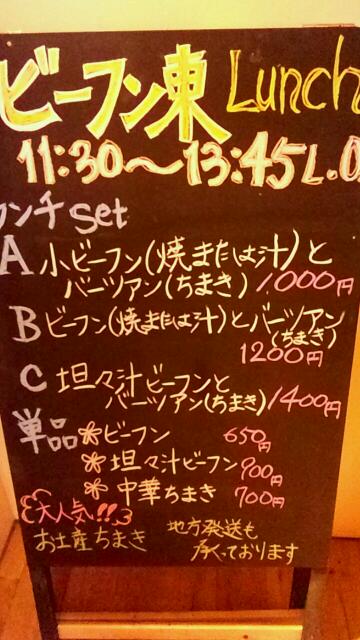 ビーフン東 Lunch
11:30～13:45 L.O
ンチ set
A 小ビーフン(焼または汁)と
バーツアン(ちまき) 1.000円
B ビーフン(焼または汁)とバーツアン
(ちまき)
1200円
C 坦々汁ビーフンと
バーツアン(ちまき) 1400円
単品 ビーフン 650円
坦々汁ビーフン 900円
中華ちまき 700円
大人気!!
お土産ちまき 地方発送も
承っております